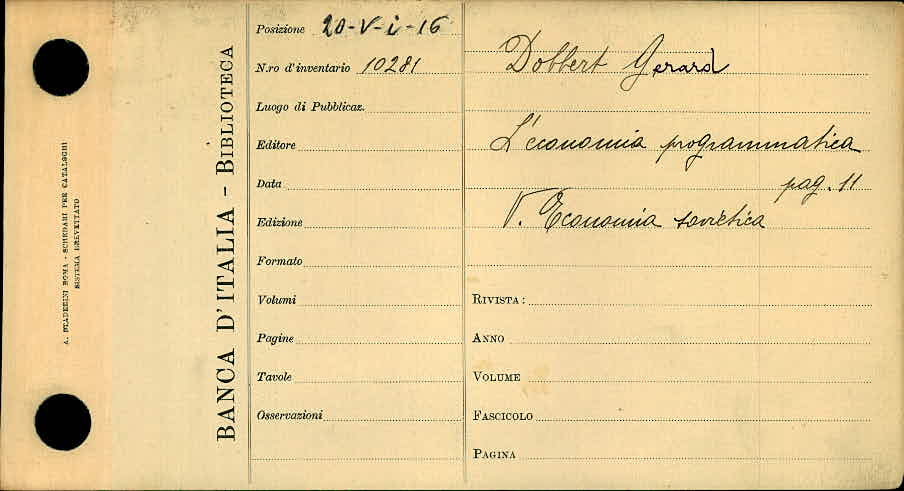 A. STADERINI ROMA - SCHEDARI PER CATALOGHI
SISTEMA BREVETTATO
BANCA D'ITALIA - BIBLIOTECA
Posizione 20-V-i-16
N.ro d'inventario 10281
Luogo di Pubblicaz.
Editore
Data
Edizione
Formato
Volumi
Pagine
Tavole
Osservazioni
Dobbert Gerard
L'economia programmatica
pag. 11
V. Economia sovietica
RIVISTA:
ANNO
VOLUME
FASCICOLO
PAGINA